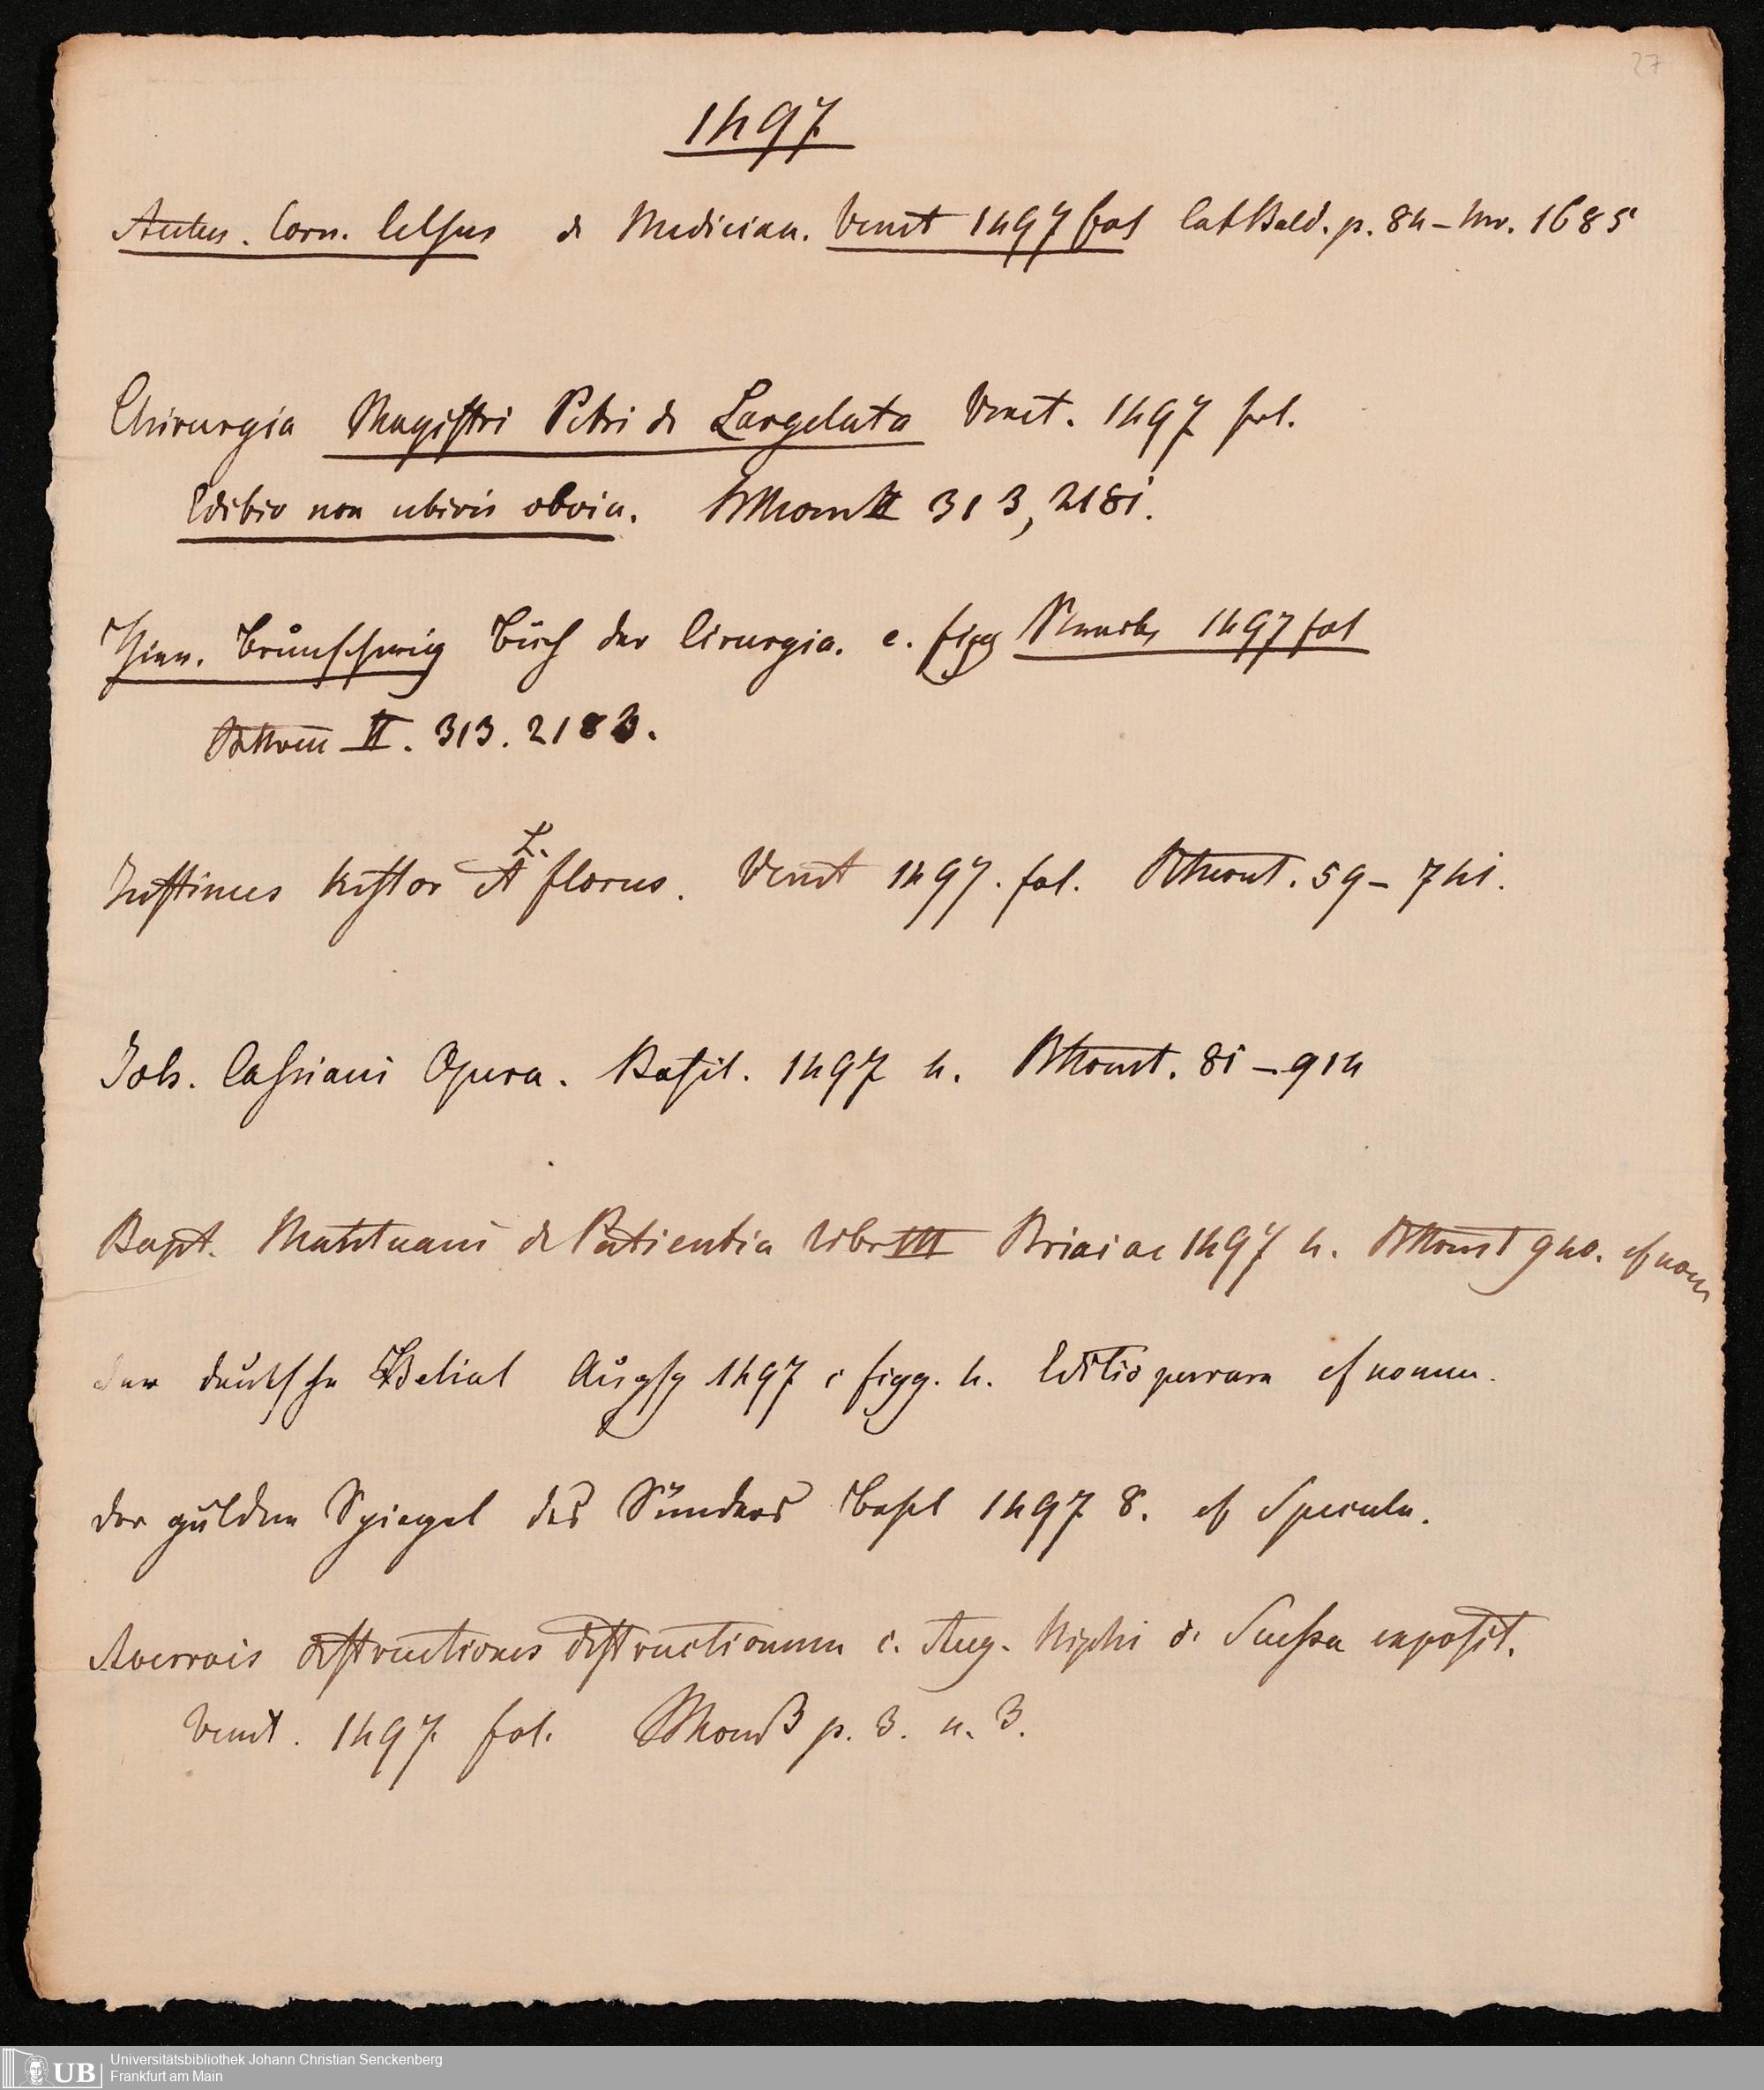 27
1497
Aulus. Corn. Celsus de Medician. Venet 1497 fol Cat Bald. p. 84 – Nro. 1685
Chirurgia Magistri Petri de Largelata Venet. 1497 fol.
Editio non ubivis obvia. II 313, 2181.
Hier. Brunschwig Buch der Cirurgia. c. figg 1497 fol
II. 313. 2183.
Justinus histor L. A florus. Venet 1497. fol. 59 – 741.
Joh. Cassiani Opera. Basil. 1497 4. 81 – 914
Bapt. Mantuani de Patientia libr III Brixiae 1497 4. 940. cf nom
der deutsche Belial Augsg 1497 c figg. 4. Editio perrara cf nomen.
der gulden Spiegel des Sünders Basel 1497 8. cf Specula.
Averrois destructiones destructionum c. Aug. Niphi d. Suessa exposit.
Venet. 1497 fol. p. 3. n. 3.
UB
Universitätsbibliothek Johann Christian Senckenberg
Frankfurt am Main